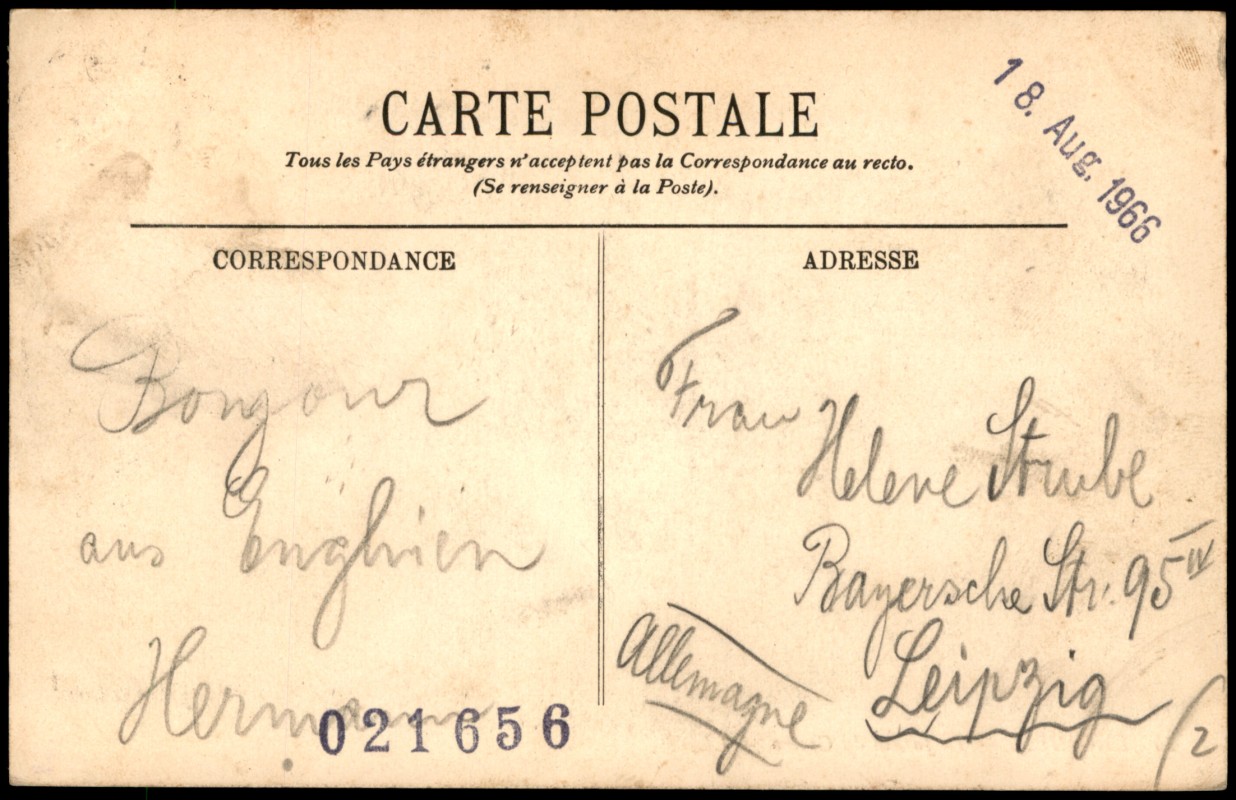 CARTE POSTALE
Tous les Pays étrangers n'acceptent pas la Correspondance au recto.
(Se renseigner à la Poste).
18. Aug. 1966
CORRESPONDANCE
Bonjour
aus Enghien
Hermann
021656
ADRESSE
Frau
Helene Strube
Bayersche Str. 95 IV
Leipzig
Allemagne
2